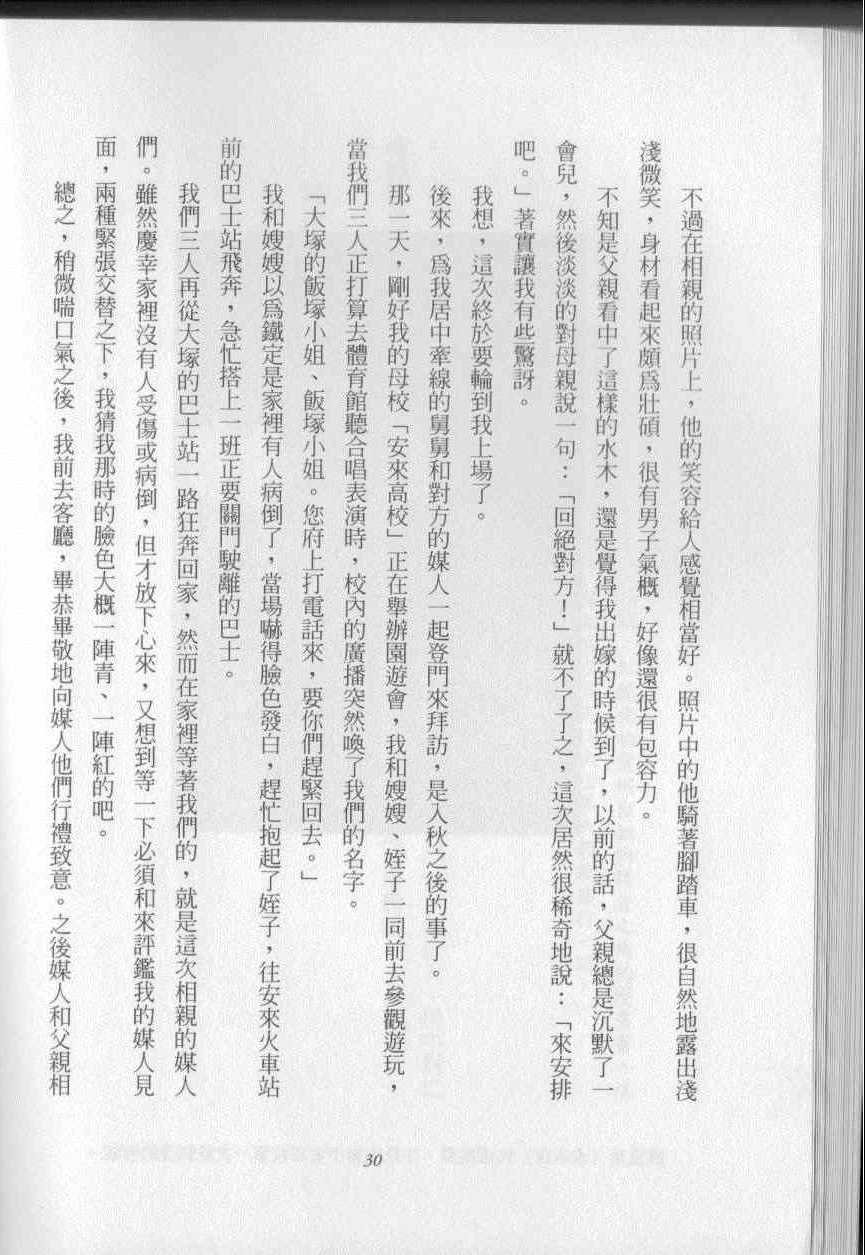 不過在相親的照片上，他的笑容給人感覺相當好。照片中的他騎著腳踏車，很自然地露出淺
淺微笑，身材看起來頗爲壯碩，很有男子氣概，好像還很有包容力。
不知是父親看中了這樣的水木，還是覺得我出嫁的時候到了，以前的話，父親總是沉默了一
會兒，然後淡淡的對母親說一句：「回絕對方！」就不了了之，這次居然很稀奇地說：「來安排
吧。」著實讓我有些驚訝。
我想，這次終於要輪到我上場了。
後來，爲我居中牽線的舅舅和對方的媒人一起登門來拜訪，是入秋之後的事了。
那一天，剛好我的母校「安來高校」正在舉辦園遊會，我和嫂嫂、姪子一同前去參觀遊玩，
當我們三人正打算去體育館聽合唱表演時，校內的廣播突然喚了我們的名字。
「大塚的飯塚小姐、飯塚小姐。您府上打電話來，要你們趕緊回去。」
我和嫂嫂以爲鐵定是家裡有人病倒了，當場嚇得臉色發白，趕忙抱起了姪子，往安來火車站
前的巴士站飛奔，急忙搭上一班正要關門駛離的巴士。
我們三人再從大塚的巴士站一路狂奔回家，然而在家裡等著我們的，就是這次相親的媒人
們。雖然慶幸家裡沒有人受傷或病倒，但才放下心來，又想到等一下必須和來評鑑我的媒人見
面，兩種緊張交替之下，我猜我那時的臉色大概一陣青、一陣紅的吧。
總之，稍微喘口氣之後，我前去客廳，畢恭畢敬地向媒人他們行禮致意。之後媒人和父親相
30